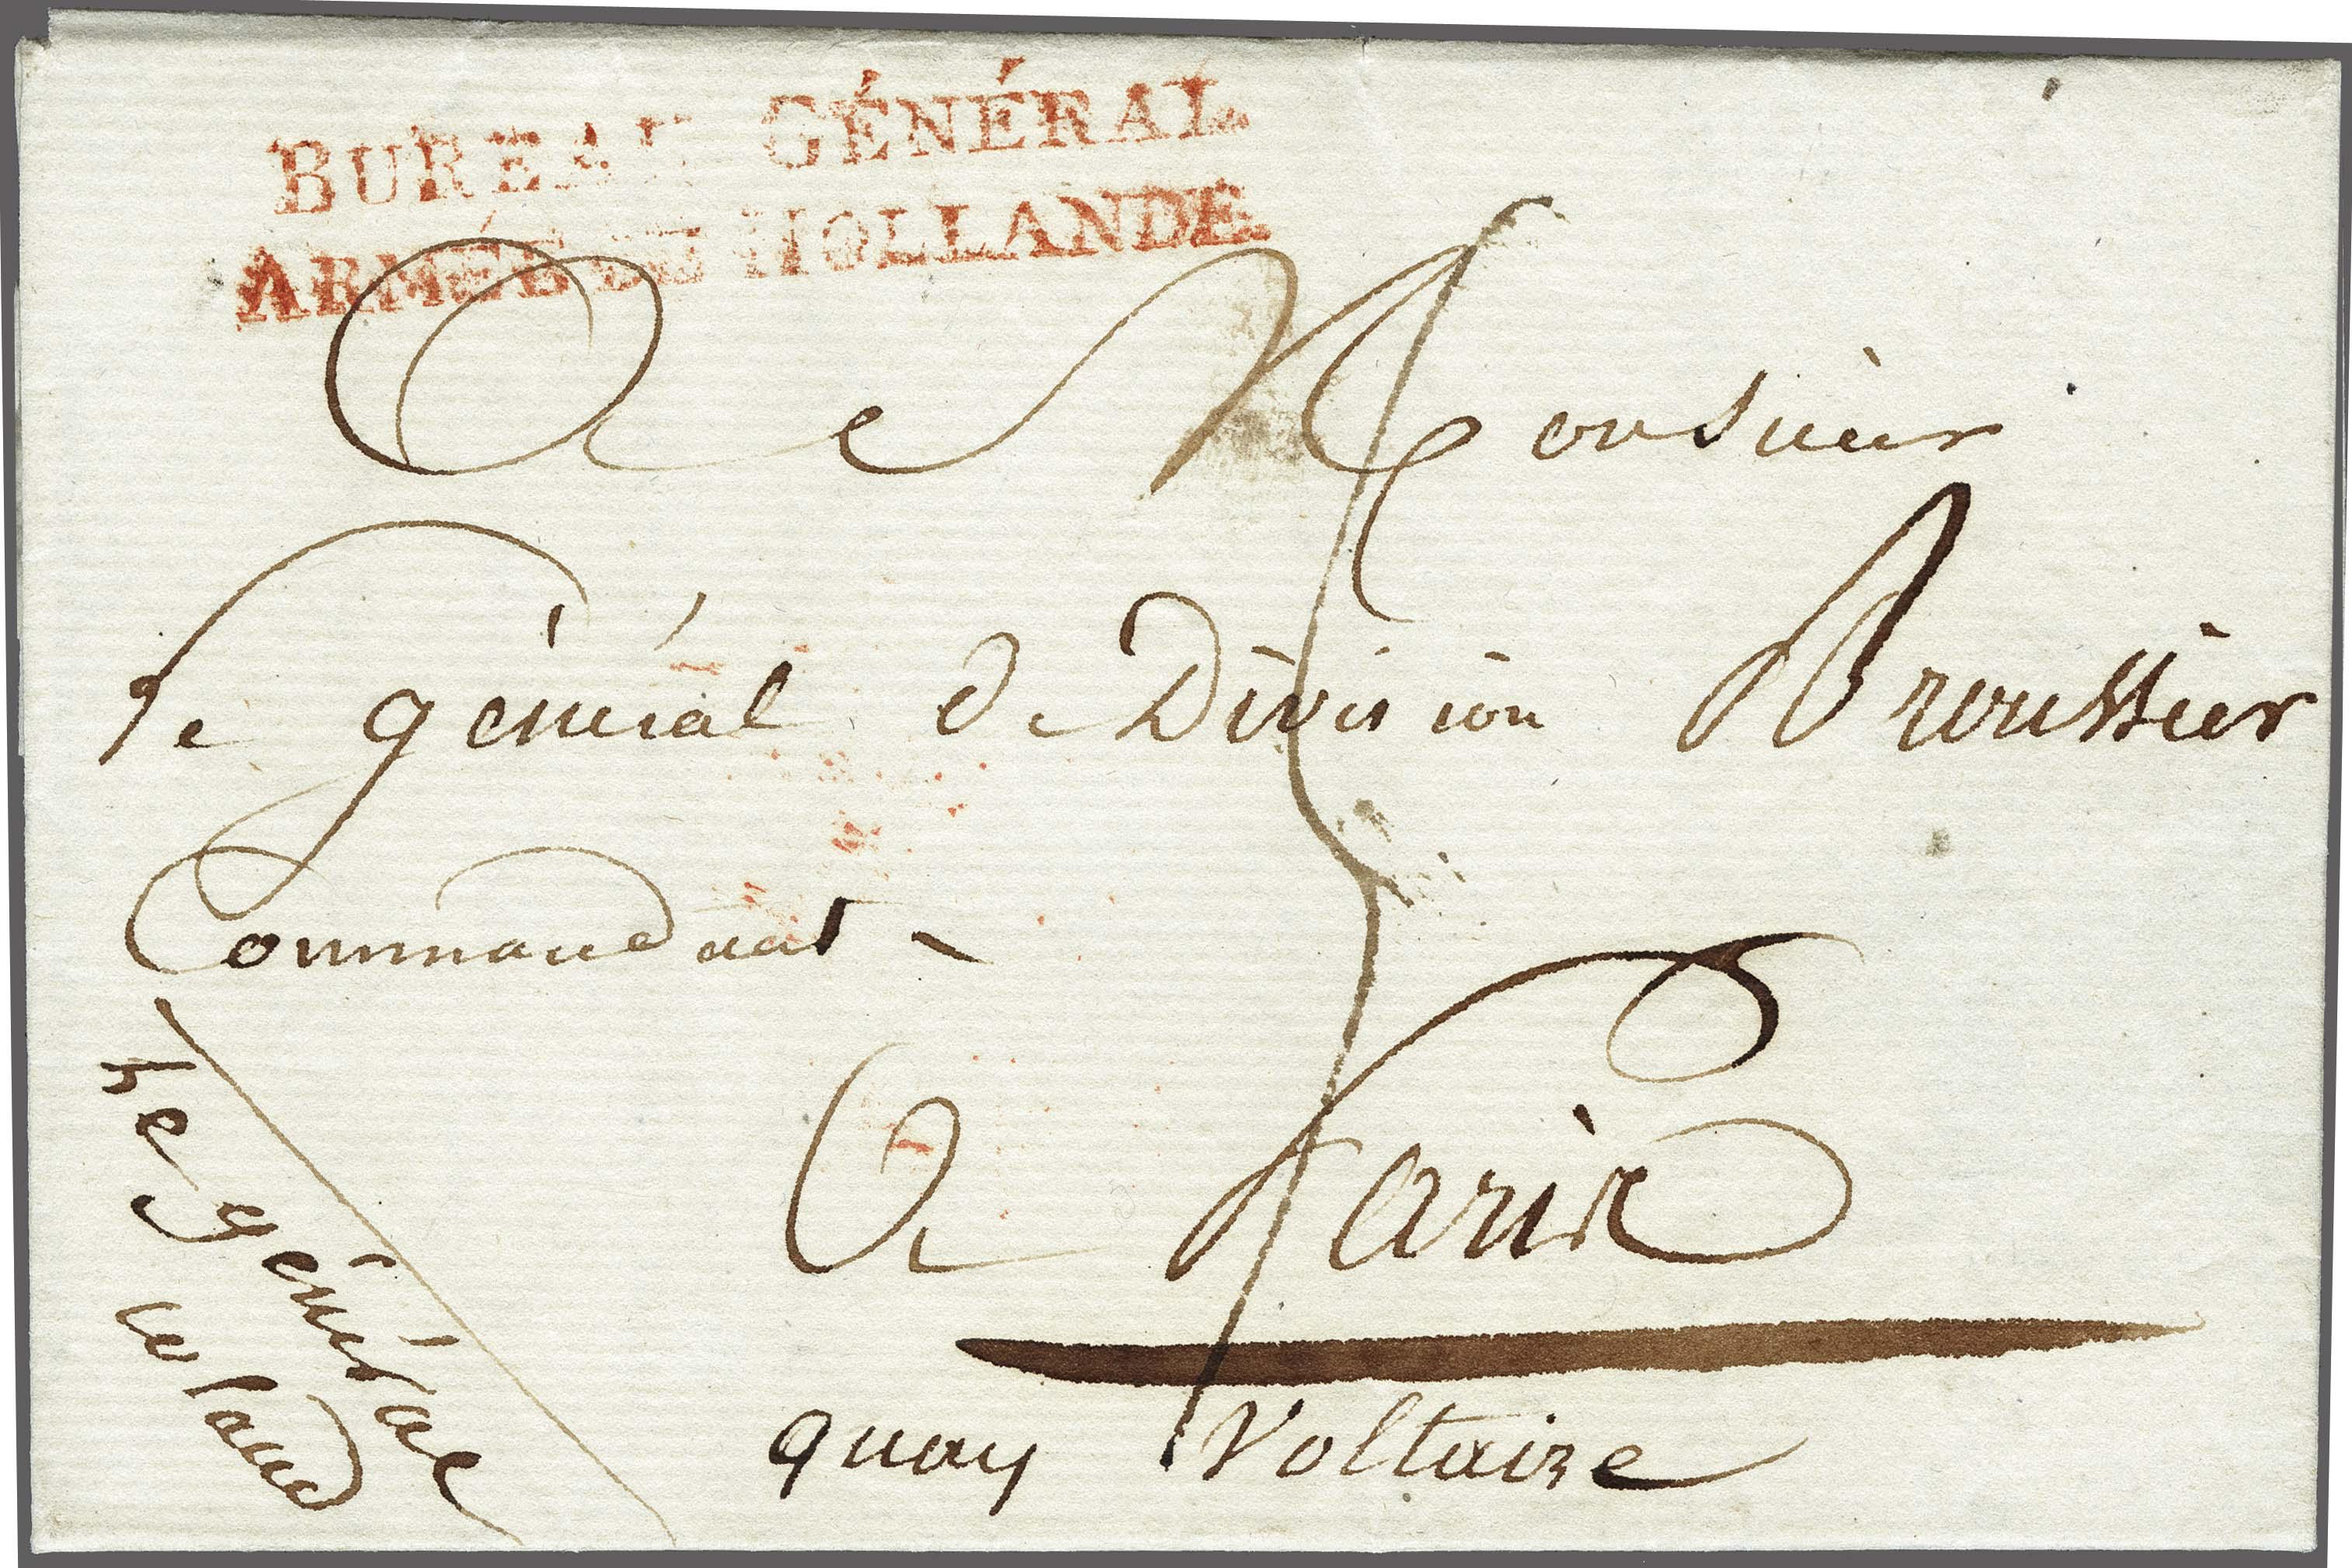 BUREAU GÉNÉRAL
ARMÉE DE HOLLANDE.
A Monsieur
Le général De Division Broussier
Commandant
A Paris
quay Voltaire
Le général